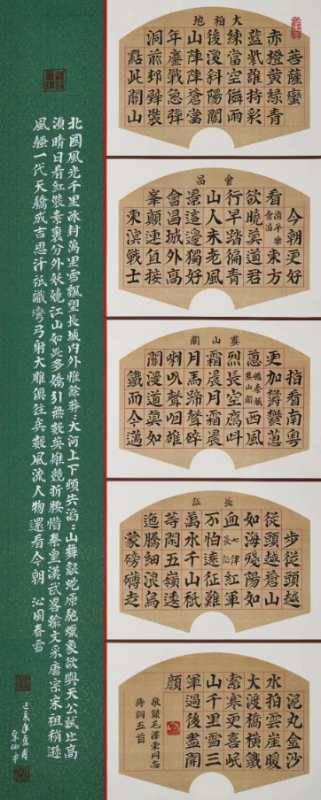 大柏地
菩薩蠻
赤橙黄緑青
藍紫誰持彩
練當空儛雨
後復斜陽關
山陣陣蒼當
年鏖戰急彈
洞前邨壁裝
點此關山
會昌
今朝更好
看清平樂會昌東方
欲曉莫道君
行早踏徧青
山人未老風
景這邊獨好
會昌城外高
峯顛連直接
東溟戰士
婁山關
指看南粤
更加鬱鬱葱
葱憶秦娥婁山關西風
烈長空鴈叫
霜晨月霜晨
月馬蹄聲碎
喇叭聲咽雄
關漫道真如
鐵而今邁
長征
步從頭越
從頭越蒼山
如海殘陽如
血七律長征紅軍
不怕遠征難
萬水千山祗
等閒五嶺逶
迤騰細浪烏
蒙磅礴走
泥丸金沙
水拍雲崖暖
大渡橋橫鐵
索寒更喜岷
山千里雪三
軍過後盡開
顔
敬録毛澤東同志
詩詞五首
北國風光千里冰封萬里雪飄望長城内外惟餘莽莽大河上下頓失滔滔山舞銀蛇原馳蠟象欲與天公試比高
須晴日看紅裝素裹分外妖嬈江山如此多嬌引無數英雄競折腰惜秦皇漢武略輸文采唐宗宋祖稍遜
風騷一代天驕成吉思汗祇識彎弓射大雕俱往矣數風流人物還看今朝 沁園春雪